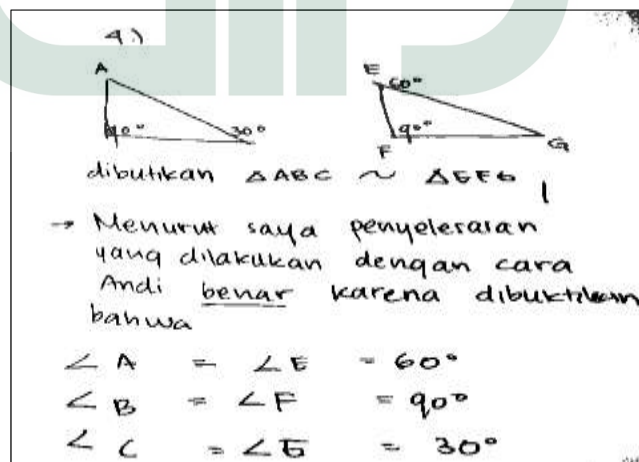 4.)
A
90° 30°
E
60°
90°
F G
dibutikan △ABC ~ △EFG
→ Menurut saya penyelesaian
yang dilakukan dengan cara
Andi benar karena dibuktikan
bahwa
∠ A = ∠ E = 60°
∠ B = ∠ F = 90°
∠ C = ∠ G = 30°